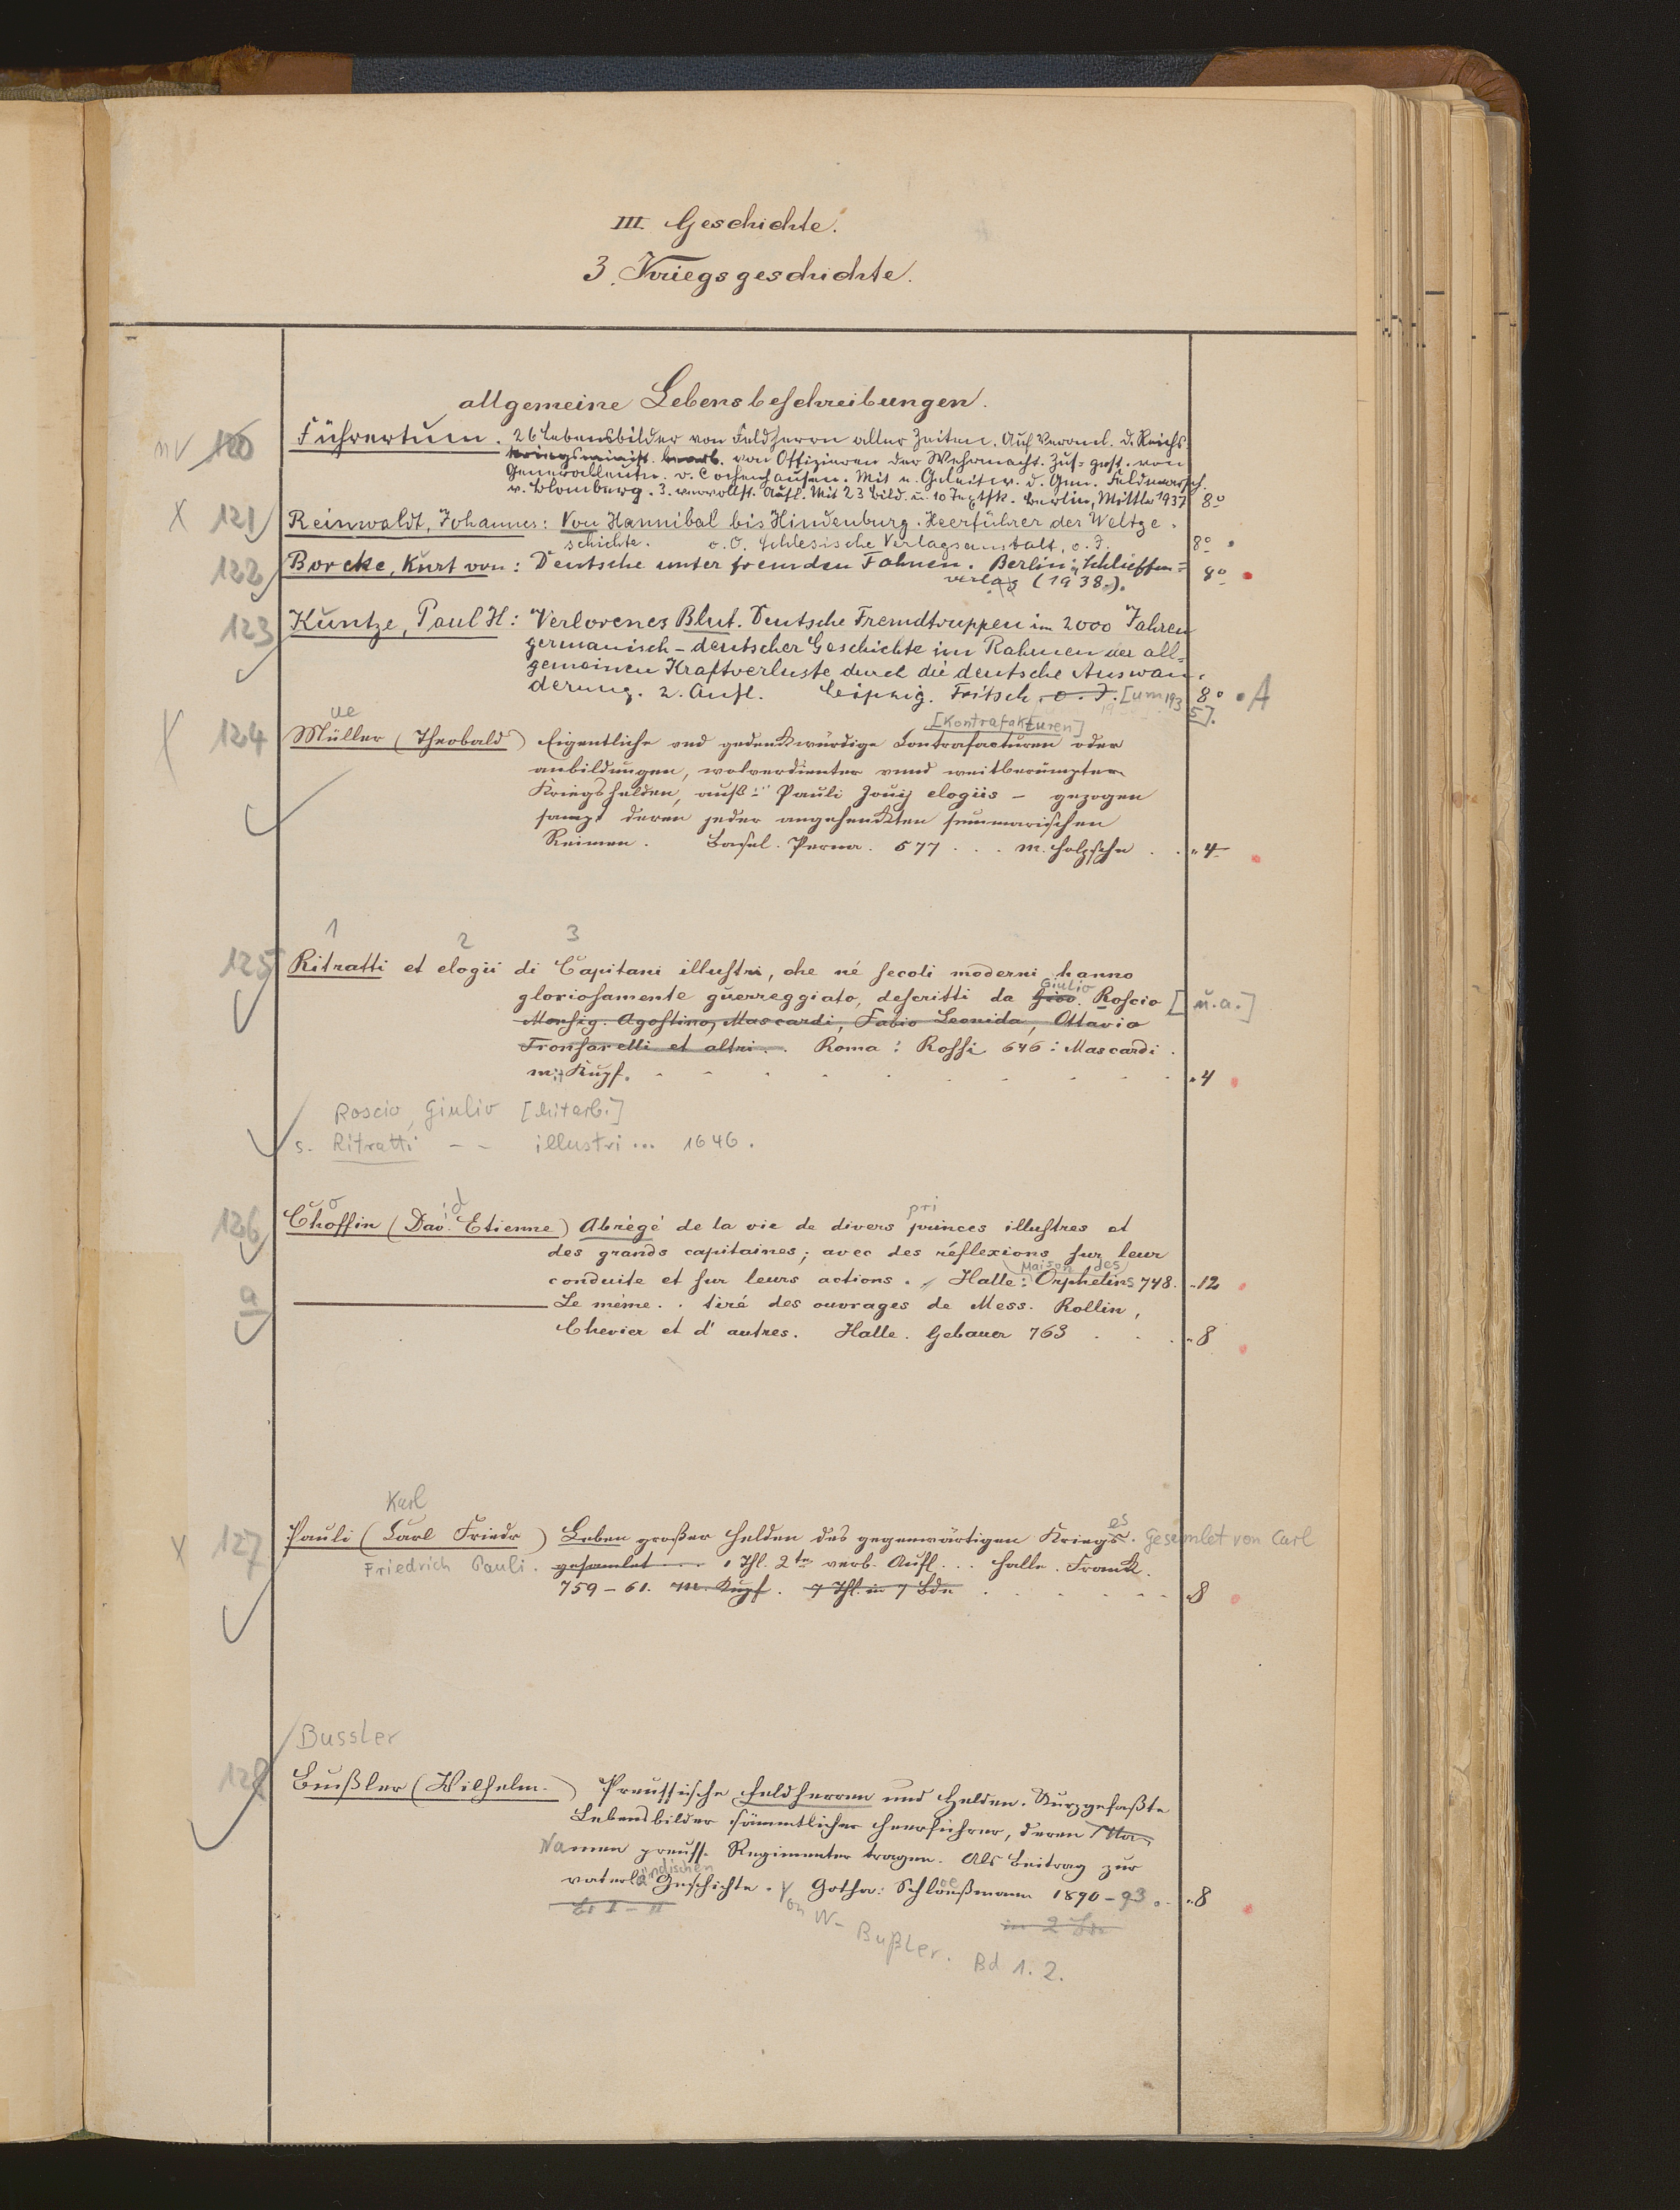 III. Geschichte.
3. Kriegsgeschichte.
allgemeine Lebensbeschreibungen.
nv 120 Führertum. 26 Lebensbilder von Feldherrn aller Zeiten. Auf Veranl. d. Reichs-
kriegsminist. bearb. von Offizieren der Wehrmacht. Zus=gest. von
Generalleutn. v. Cochenhausen. Mit e. Geleitw. d. Gen. Feldmarsch.
v. Blomberg. 3. vervollst. Aufl. Mit 23 Bild. u. 10 Textsk. Berlin, Mittler 1937 8°
X 121 Reinwaldt, Johannes: Von Hannibal bis Hindenburg. Heerführer der Weltge-
schichte. o.O. Schlesische Verlagsanstalt, o.J. 8°
122 Borcke, Kurt von: Deutsche unter fremden Fahnen. Berlin: Schlieffen=
verlag (1938). 8°
123 Kuntze, Paul H: Verlorenes Blut. Deutsche Fremdtruppen im 2000 Jahren
germanisch-deutscher Geschichte im Rahmen der all-
gemeinen Kraftverluste durch die deutsche Auswan-
derung. 2. Aufl. Leipzig. Fritsch. o. J. [um 193 8° A
5].
ue [Kontrafakturen]
X 124 Müller (Theobald) Eigentliche vnd gedenkwürdige Contrafacturen oder
anbildungen, wolverdienter vnnd weitberümpter
Kriegshelden, auß Pauli Jouij elogiis - gezogen
sampt deren jeder angehenkten summarischen
Reimen. Basel. Perna. 577 . . . m. Holzschn . . 4
1 2 3
125 Ritratti et elogii di Capitani illustri, che né secoli moderni hanno
Giulio
gloriosamente guerreggiato, descritti da Gioo. Roscio [u.a.]
Monsig. Agostino, Mascardi, Fabio Leonida, Ottavio
Tronsarelli et altri. . Roma: Rossi 646: Mascardi.
m. Kupf. 4
Roscio, Giulio [Mitarb.]
s. Ritratti - - illustri ... 1646.
o id pri
126 Choffin (Dav. Etienne) Abrégé de la vie de divers princes illustres et
des grands capitaines; avec des réflexions sur leur
Maison des
conduite et sur leurs actions. Halle: Orphelins 748. 12
a Le même . . tiré des ouvrages de Mess. Rollin,
Chevier et d'autres. Halle. Gebauer 763 . . . 8
Karl es
X 127 Pauli (Carl Friedr) Leben großer Helden des gegenwärtigen Kriegs. Gesamlet von Carl
Friedrich Pauli. gesamlet 1 Thl. 2te verb. Aufl. . . Halle. Frank.
759-61. m. Kupf. 7 Thl. in 7 Bdn 8
Bussler
128 Bußler (Wilhelm) Preussische Feldherren und Helden. Kurzgefaßte
Lebensbilder sämmtlicher Heerführer, deren Na-
Namen preuss. Regimenter tragen. Als Beitrag zur
ändischen
vaterl. Geschichte. Gotha: Schloeßmann 1890-93. 8
Bd I-II Von W- Bußler. Bd 1. 2.
in 2 Bdn